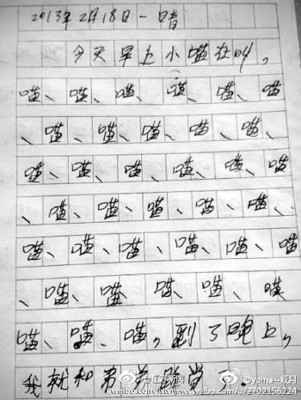 2013年2月18日 一 晴
今天早上小喵在叫,
喵、喵、喵、喵、喵、喵
、喵、喵、喵、喵、喵、
喵、喵、喵、喵、喵、喵
、喵、喵、喵、喵、喵、
喵、喵、喵、喵、喵、喵
、喵、喵、喵、喵、喵
喵、喵、喵,到了晚上,
我就和弟弟觉了.
@yoma--妖月
weibo.com/u/2702156224